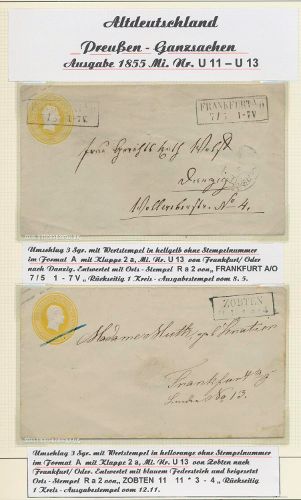 Altdeutschland
Preußen - Ganzsachen
Ausgabe 1855 Mi. Nr. U 11 – U 13
FRANKFURT A/O
7/5 1-7V
FRANKFURT A/O
7/5 1-7V
Frau Gerichts Rath Wolff
Danzig
No 4.
Umschlag 3 Sgr. mit Wertstempel in hellgelb ohne Stempelnummer
im Format A mit Klappe 2 a, Mi. Nr. U 13 von Frankfurt/ Oder
nach Danzig. Entwertet mit Orts - Stempel R a 2 von „ FRANKFURT A/O
7 / 5 1 - 7 V „ Rückseitig 1 Kreis - Ausgabestempel vom 8. 5.
ZOBTEN
Madame
Frankfurt
No 13.
Umschlag 3 Sgr. mit Wertstempel in hellorange ohne Stempelnummer
im Format A mit Klappe 2 a, Mi. Nr. U 13 von Zobten nach
Frankfurt/ Oder. Entwertet mit blauem Federstrich und beigesetzt
Orts - Stempel R a 2 von „ ZOBTEN 11 11 * 3 - 4 „ Rückseitig
1 Kreis - Ausgabestempel vom 12.11.